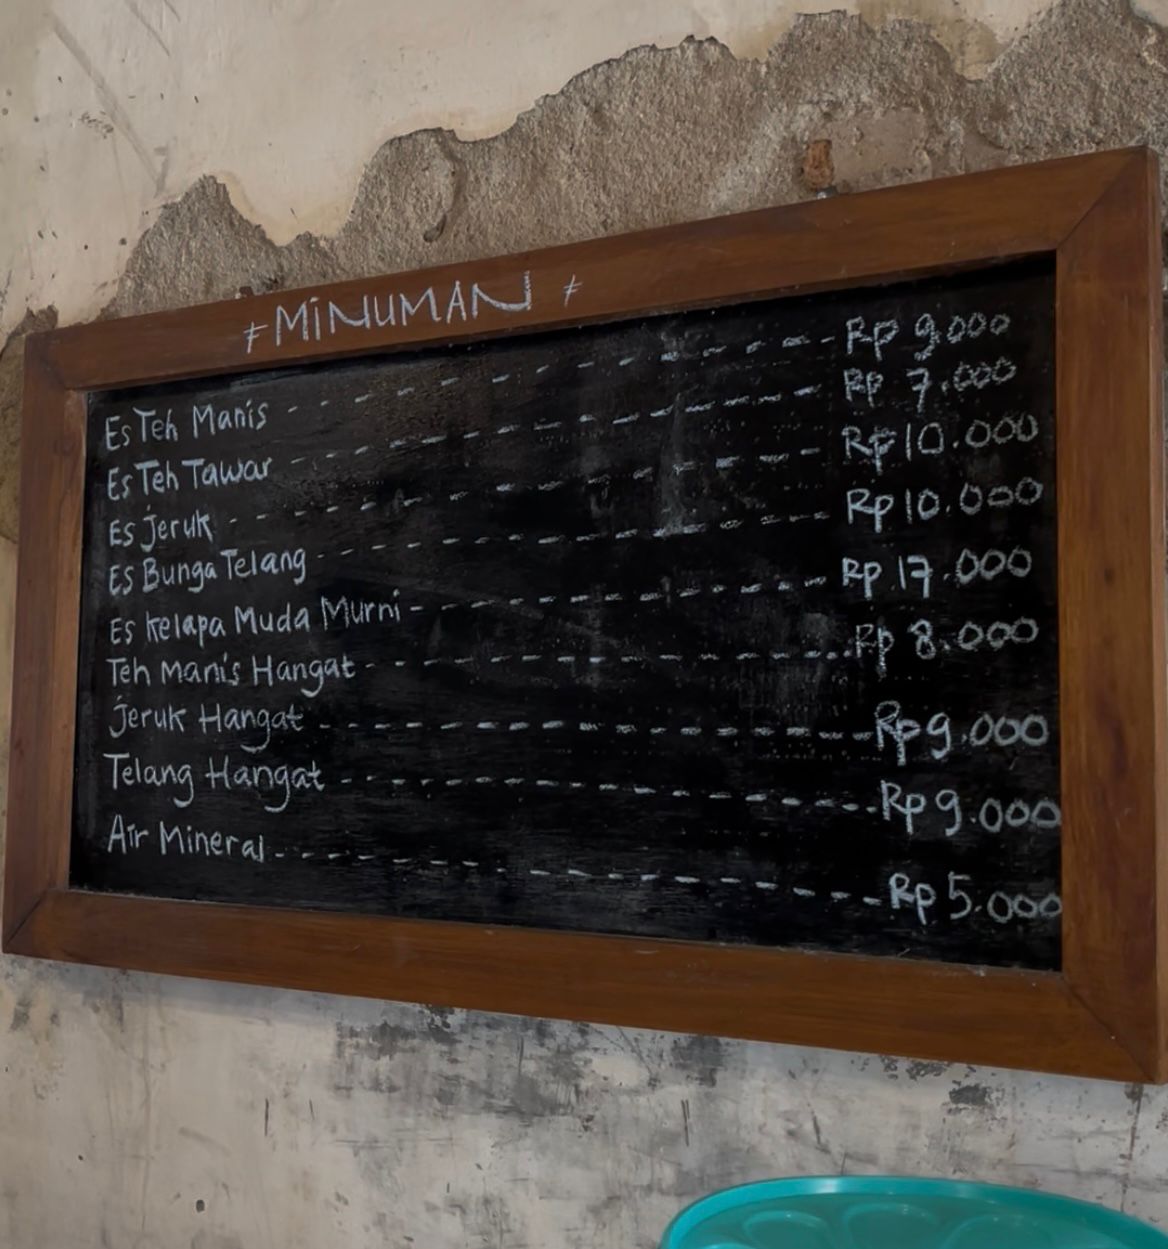 ≠ MINUMAN ≠
Es Teh Manis - - - - - - - - - - - Rp 9.000
Es Teh Tawar - - - - - - - - - - - Rp 7.000
Es jeruk - - - - - - - - - - - Rp 10.000
Es Bunga Telang - - - - - - - - - - - Rp 10.000
Es Kelapa Muda Murni - - - - - - - - - - - Rp 17.000
Teh Manis Hangat - - - - - - - - - - - Rp 8.000
Jeruk Hangat - - - - - - - - - - - Rp 9.000
Telang Hangat - - - - - - - - - - - Rp 9.000
Air Mineral - - - - - - - - - - - Rp 5.000